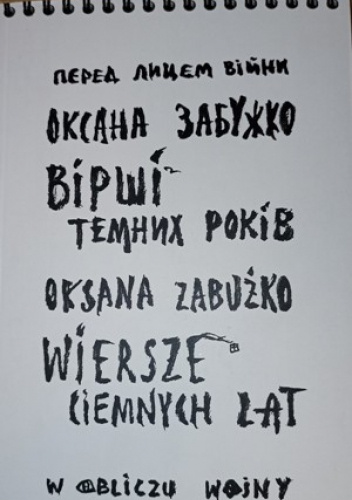 ПЕРЕД ЛИЦЕМ ВІЙНИ
ОКСАНА ЗАБУЖКО
ВІРШІ
ТЕМНИХ РОКІВ
OKSANA ZABUŻKO
WIERSZE
CIEMNYCH LAT
W OBLICZU WOJNY